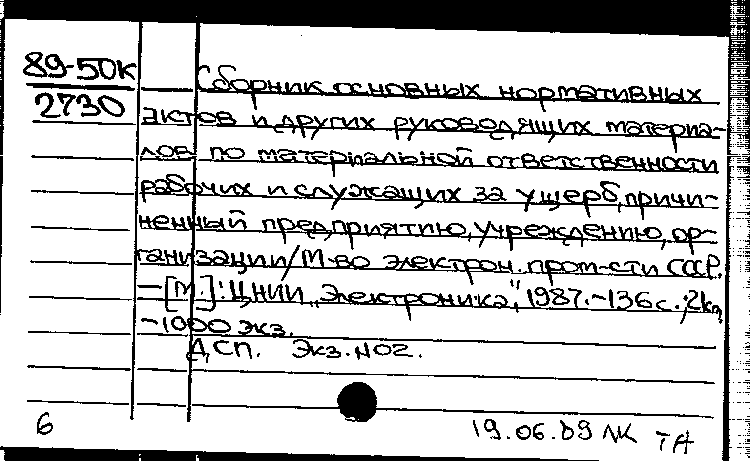 89-50к
2730
Сборник основных нормативных
актов и других руководящих материа-
лов по материальной ответственности
рабочих и служащих за ущерб, причи-
ненный предприятию, учреждению, ор-
ганизации/М-во электрон. пром-сти СССР.
—[М.]: ЦНИИ „Электроника", 1987.-136с.;
-1000 экз.
ДСП. Экз. №02.
6
19.06.89 ТА